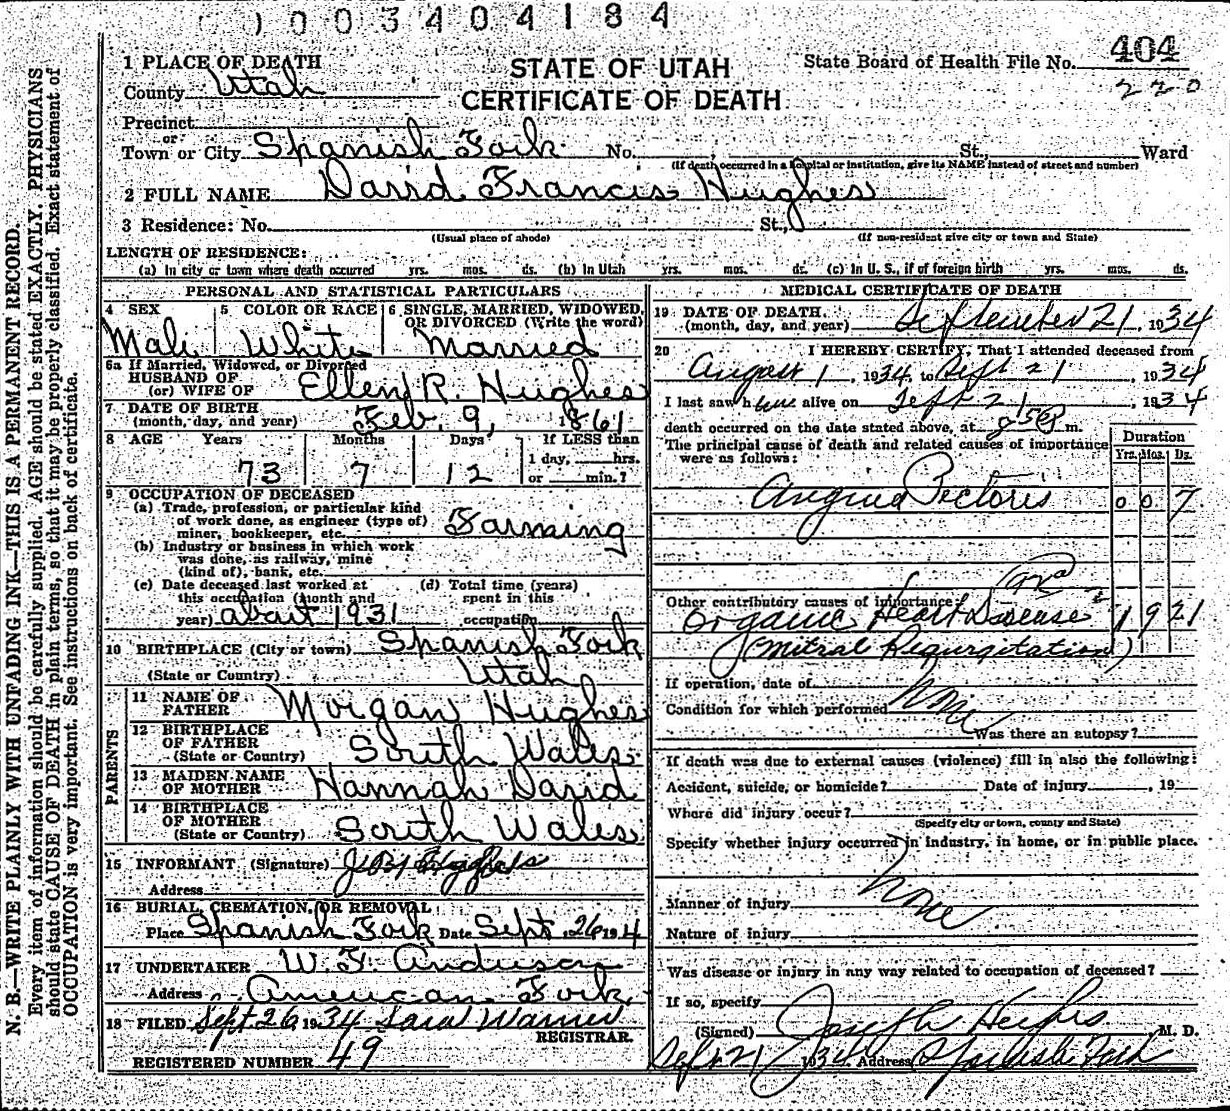 1003404184
1 PLACE OF DEATH
STATE OF UTAH
State Board of Health File No. 404
County Utah
CERTIFICATE OF DEATH
220
Precinct
or
Town or City Spanish Fork No. St., Ward
(If death occurred in a hospital or institution, give its NAME instead of street and number)
2 FULL NAME David Francis Hughes
3 Residence: No. St.,
(Usual place of abode) (If non-resident give city or town and State)
LENGTH OF RESIDENCE:
(a) In city or town where death occurred yrs. mos. ds. (b) In Utah yrs. mos. ds. (c) In U. S., if of foreign birth yrs. mos. ds.
PERSONAL AND STATISTICAL PARTICULARS
4 SEX 5 COLOR OR RACE 6 SINGLE, MARRIED, WIDOWED, OR DIVORCED (Write the word)
Male White Married
6a If Married, Widowed, or Divorced
HUSBAND OF
(or) WIFE OF Ellen R. Hughes
7 DATE OF BIRTH
(month, day, and year) Feb. 9, 1861
8 AGE Years Months Days If LESS than
1 day, hrs.
73 7 12 or min.?
9 OCCUPATION OF DECEASED
(a) Trade, profession, or particular kind
of work done, as engineer (type of)
miner, bookkeeper, etc. Farming
(b) Industry or business in which work
was done, as railway, mine
(kind of), bank, etc.
(c) Date deceased last worked at (d) Total time (years)
this occupation (month and spent in this
year) about 1931 occupation
10 BIRTHPLACE (City or town) Spanish Fork
(State or Country) Utah
PARENTS
11 NAME OF
FATHER Morgan Hughes
12 BIRTHPLACE
OF FATHER
(State or Country) South Wales
13 MAIDEN NAME
OF MOTHER Hannah David
14 BIRTHPLACE
OF MOTHER
(State or Country) South Wales
15 INFORMANT (Signature)
Address
16 BURIAL, CREMATION, OR REMOVAL
Place Spanish Fork Date Sept. 26 194
17 UNDERTAKER W. F. Anderson
Address American Fork,
18 FILED Sept 26 1934 Sara Warner
REGISTRAR.
REGISTERED NUMBER 49
MEDICAL CERTIFICATE OF DEATH
19 DATE OF DEATH
(month, day, and year) September 21, 1934
20 I HEREBY CERTIFY, That I attended deceased from
August 1, 1934, to Sept 21, 1934
I last saw him alive on Sept 21, 1934
death occurred on the date stated above, at m.
The principal cause of death and related causes of importance
were as follows:
Duration
Yrs. Mos. Ds.
Angina Pectoris 0 0 7
Other contributory causes of importance
Organic Heart Disease 1 9 21
(Mitral Regurgitation)
If operation, date of
Condition for which performed None
Was there an autopsy?
If death was due to external causes (violence) fill in also the following:
Accident, suicide, or homicide? Date of injury , 19
Where did injury occur?
(Specify city or town, county and State)
Specify whether injury occurred in industry, in home, or in public place.
Manner of injury None
Nature of injury
Was disease or injury in any way related to occupation of deceased?
If so, specify
(Signed) Joseph Hughes M. D.
Sept 21 1934 Address Spanish Fork
N. B.—WRITE PLAINLY WITH UNFADING INK—THIS IS A PERMANENT RECORD.
Every item of information should be carefully supplied. AGE should be stated EXACTLY. PHYSICIANS
should state CAUSE OF DEATH in plain terms, so that it may be properly classified. Exact statement of
OCCUPATION is very important. See instructions on back of certificate.